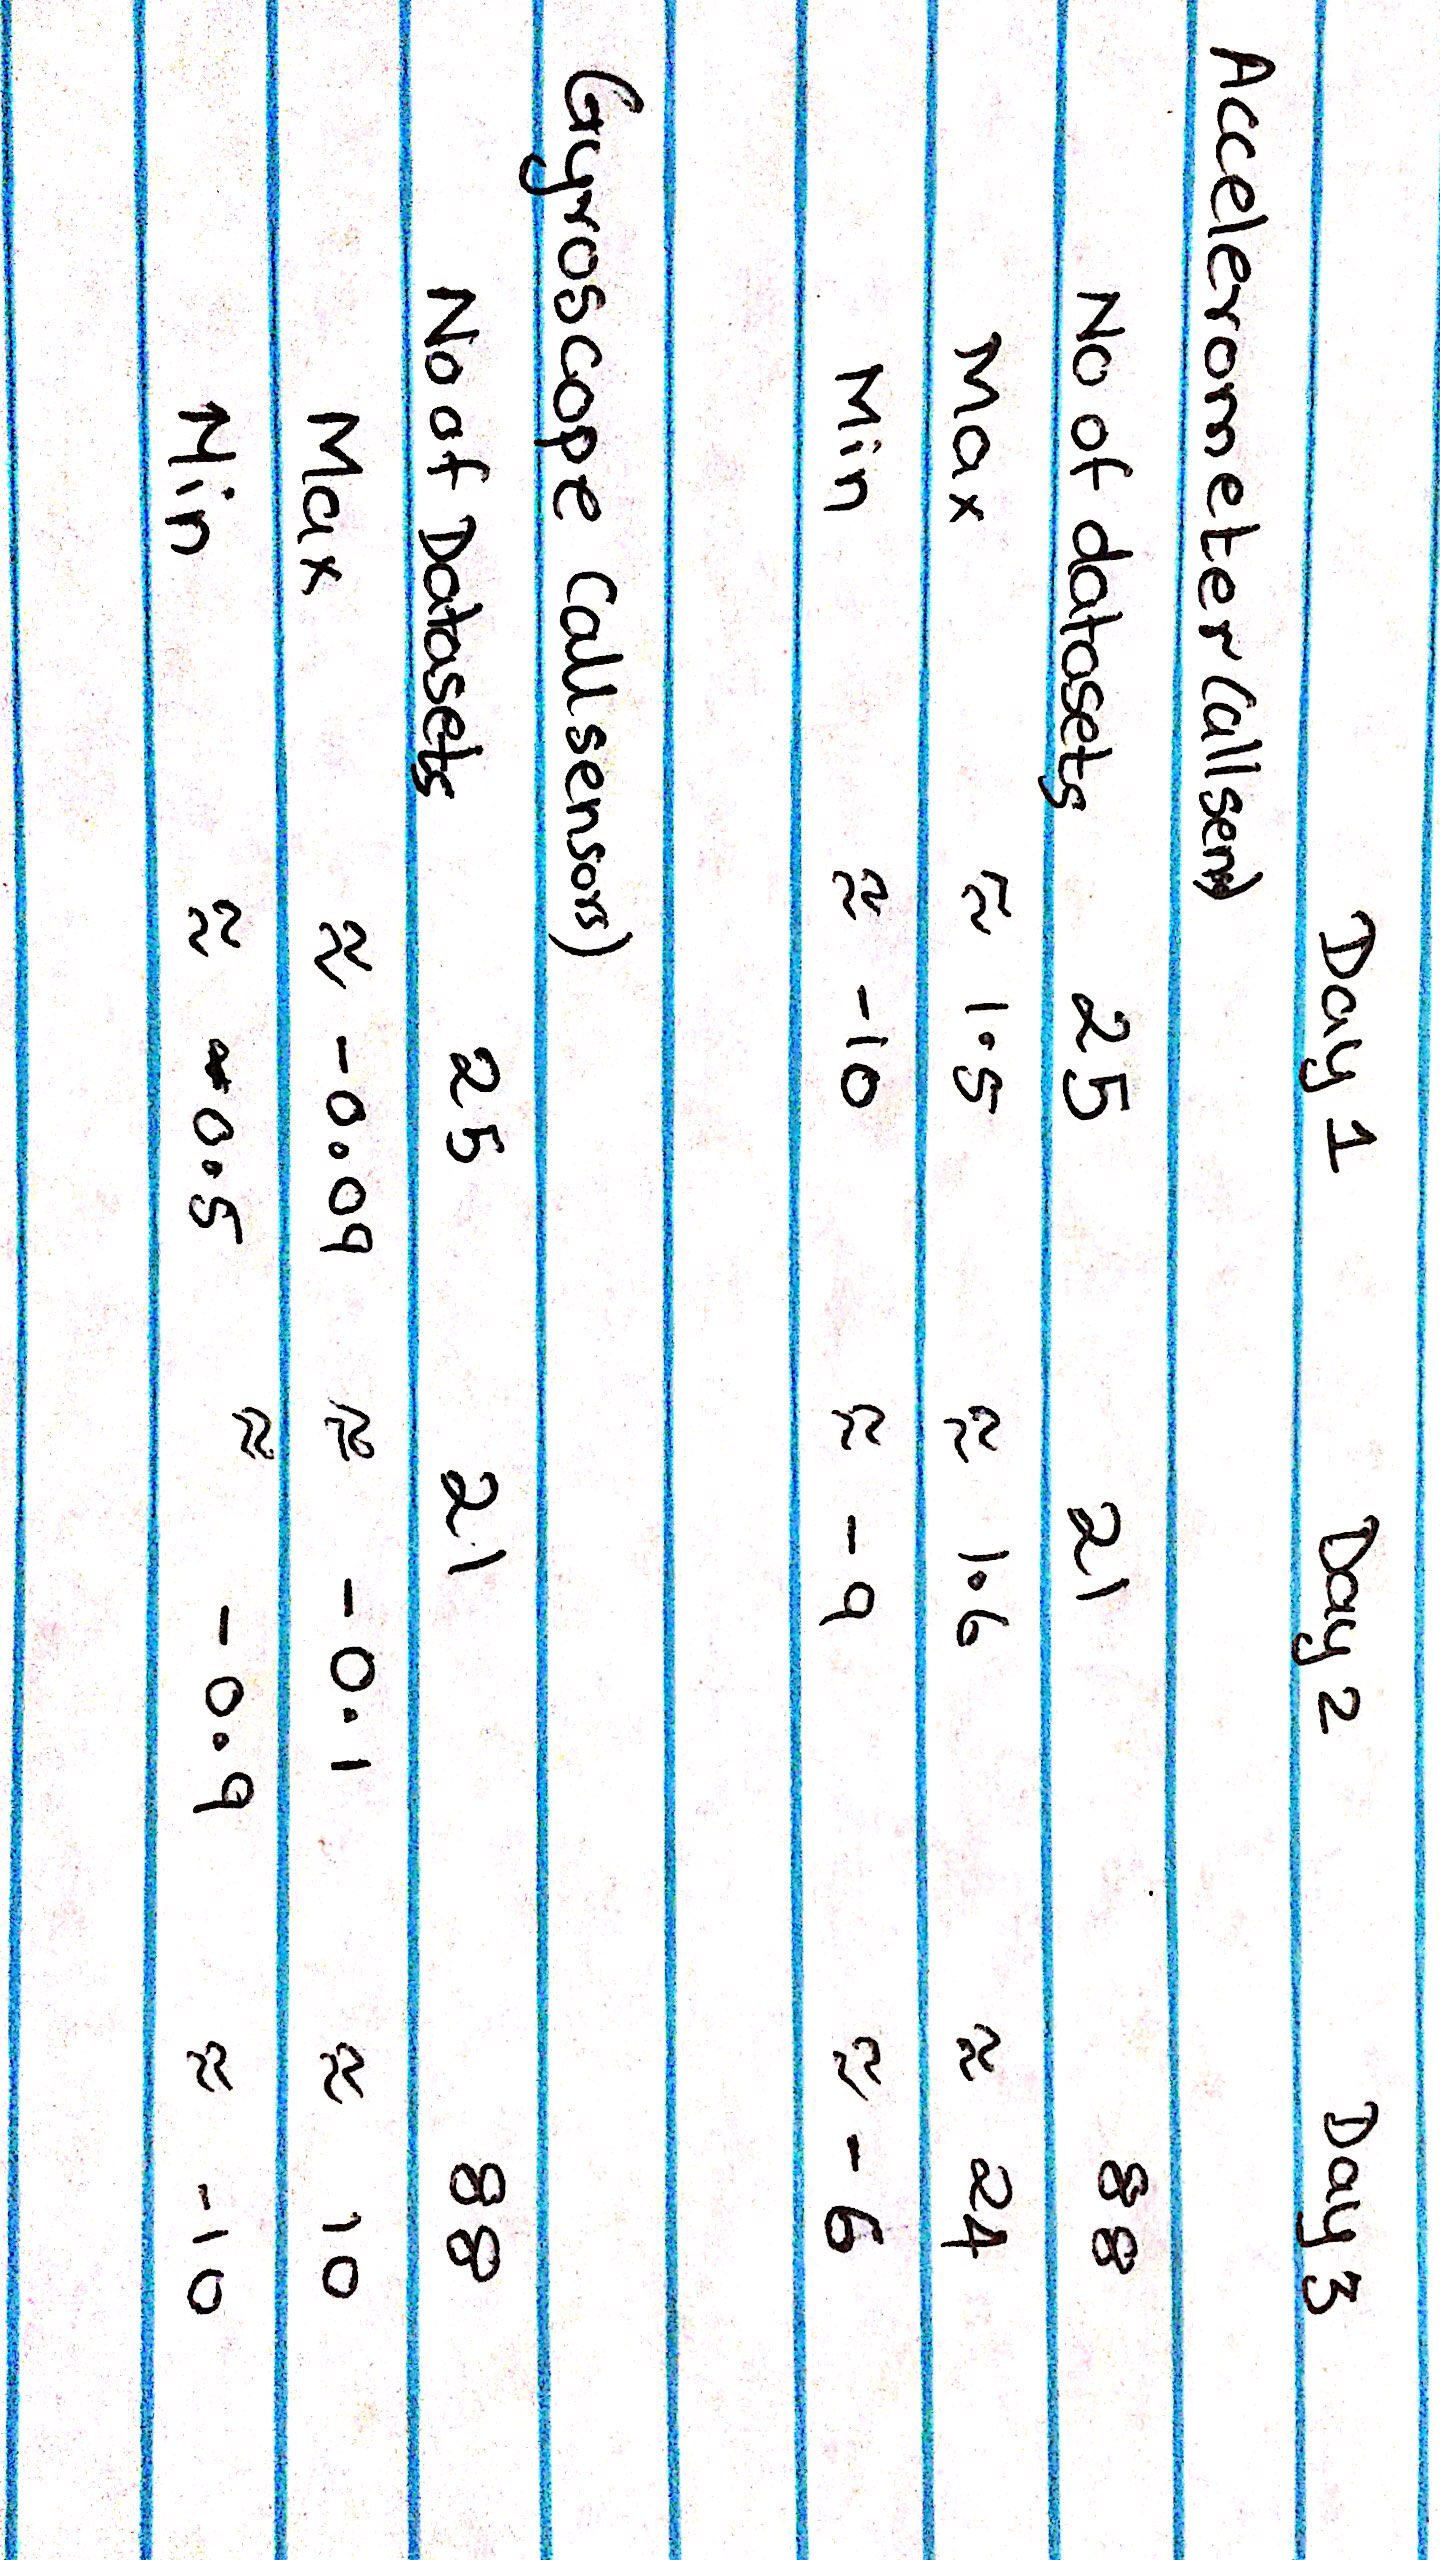 Day 1 Day 2 Day 3
Accelerometer (all sen)
No of datasets 25 21 88
Max ≈ 1.5 ≈ 1.6 ≈ 24
Min ≈ -10 ≈ -9 ≈ -6
Gyroscope (all sensors)
No of Datasets 25 21 88
Max ≈ -0.09 ≈ -0.1 ≈ 10
Min ≈ -0.5 ≈ -0.9 ≈ -10